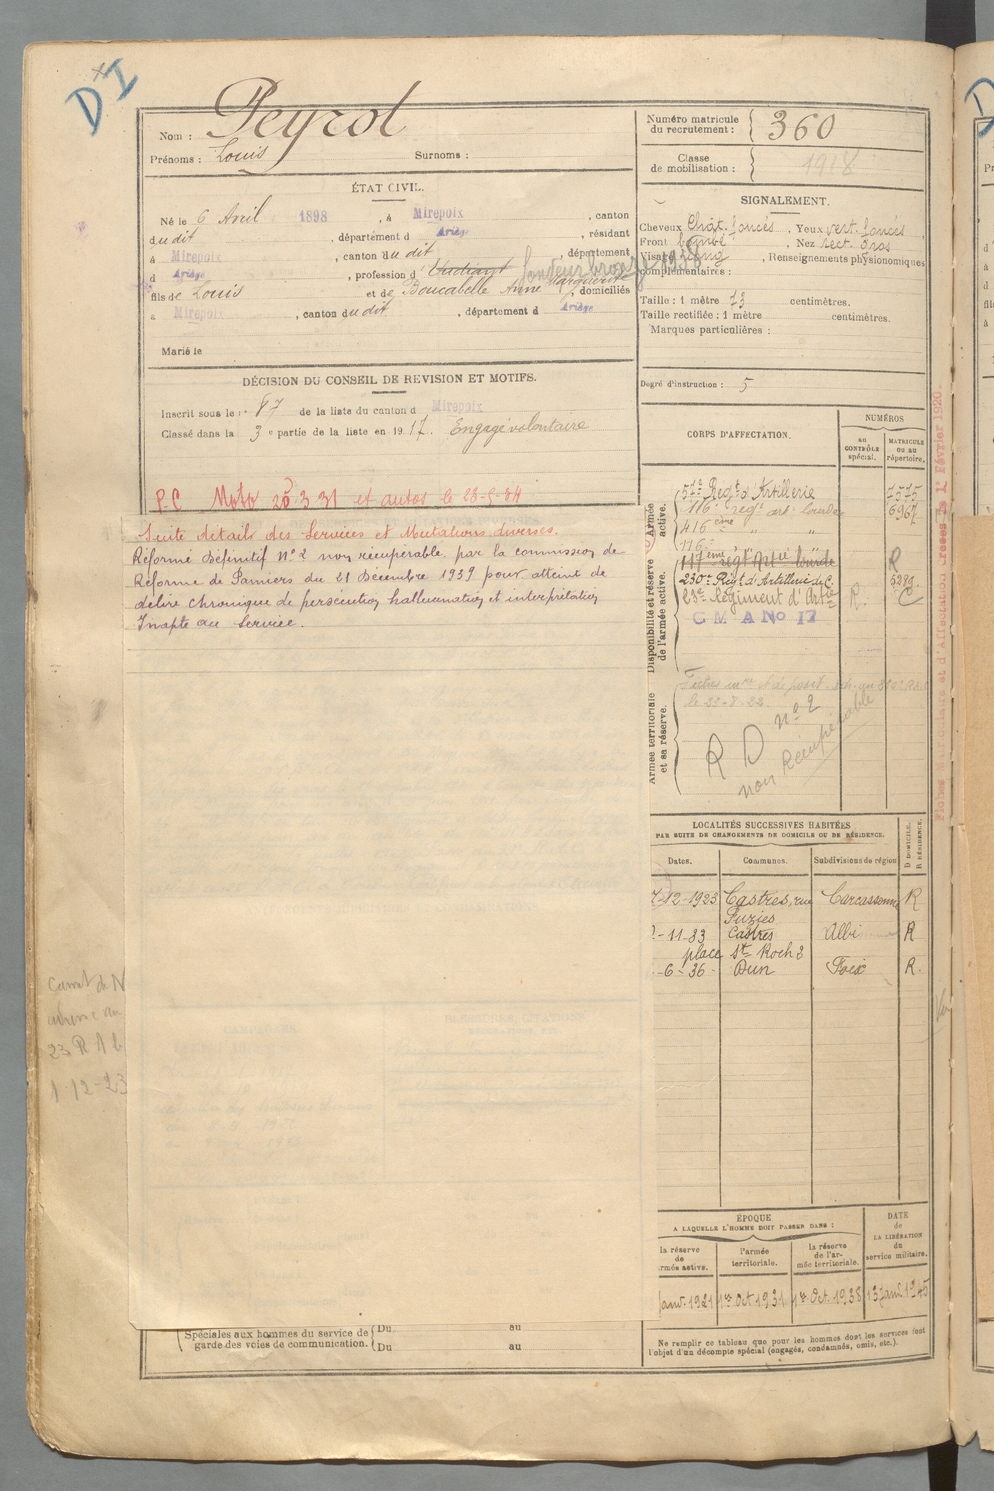 D I
Nom : Peyrol
Prénoms : Louis Surnoms :
Numéro matricule du recrutement : 360
Classe de mobilisation : 1918
ÉTAT CIVIL.
Né le 6 Avril 1898, à Mirepoix, canton
dudit, département d Ariège, résidant
à Mirepoix, canton dudit, département
d Ariège, profession d'étudiant fondeur bronze 1938
fils de Louis et de Boucabelle Anne Marguerite, domiciliés
à Mirepoix, canton dudit, département d Ariège
Marié le
SIGNALEMENT.
Cheveux Chât. foncés, Yeux vert. foncés
Front bombé, Nez rect. gros
Visage long, Renseignements physionomiques
complémentaires :
Taille : 1 mètre 73 centimètres.
Taille rectifiée : 1 mètre centimètres.
Marques particulières :
Degré d'instruction : 5
DÉCISION DU CONSEIL DE REVISION ET MOTIFS.
Inscrit sous le n° 87 de la liste du canton d Mirepoix
Classé dans la 3e partie de la liste en 1917. Engagé volontaire
P.C Moto 20 3 31 et autos le 23-5-34
Suite détails des Services et Mutations diverses.
Réformé Définitif N°2 non récupérable par la commission de
Réforme de Pamiers du 21 Décembre 1939 pour atteint de
délire chronique de persécution hallucination et interprétation
Inapte au Service.
CORPS D'AFFECTATION.
NUMÉROS
au CONTRÔLE spécial.
MATRICULE ou au répertoire.
Armée active.
57e Regt d'Artillerie 7575
116e regt art. lourde 6967
416ème " "
116e
Disponibilité et réserve de l'armée active.
117ème regt Art lourde R
230e Régt d'Artillerie de C. 528g.
23e Régiment d'Artie R. C
C M A No 17
Armée territoriale et sa réserve.
le 23-8-22
R D n° 2
non Récupérable
Fiches matriculaire et d'affectation créées le 1er Février 1920.
LOCALITÉS SUCCESSIVES HABITÉES
PAR SUITE DE CHANGEMENTS DE DOMICILE OU DE RÉSIDENCE.
Dates. Communes. Subdivisions de région D DOMICILE. R RÉSIDENCE.
7-12-1923 Castres, rue Fuziès Carcassonne R
-11-33 Castres place St Roch 3 Albi R
-6-36- Dun Foix R.
Carnet de
23 R A
1-12-23
ÉPOQUE
A LAQUELLE L'HOMME DOIT PASSER DANS :
DATE de LA LIBÉRATION du service militaire.
la réserve de armée active.
l'armée territoriale.
la réserve de l'armée territoriale.
janv. 1921 1er Oct. 1931 1er Oct. 1938 13 janv. 1945
Spéciales aux hommes du service de Du au
garde des voies de communication. Du au
Ne remplir ce tableau que pour les hommes dont les services font
l'objet d'un décompte spécial (engagés, condamnés, omis, etc.).